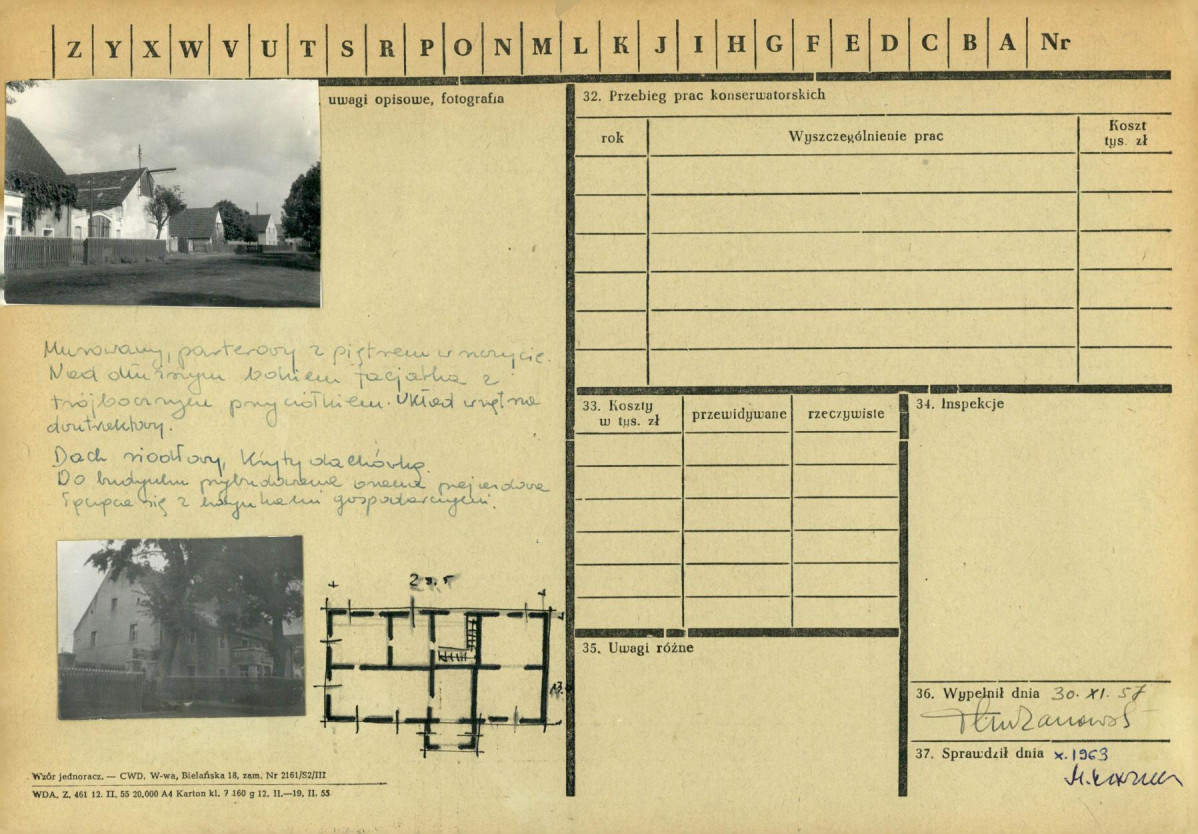 Z Y X W V U T S R P O N M L K J I H G F E D C B A Nr
uwagi opisowe, fotografia
Murowany, parterowy z piętrem w szczycie.
Nad dłuższym bokiem facjatka z
trójbocznym przyczółkiem. Układ wnętrza
dwutraktowy.
Dach siodłowy, kryty dachówką.
Do budynku przybudowana brama przejazdowa
łącząca się z budynkami gospodarczymi.
Wzór jednoracz. — CWD. W-wa, Bielańska 18, zam. Nr 2161/S2/III
WDA. Z. 461 12. II. 55 20.000 A4 Karton kl. 7 160 g 12. II.—19. II. 55
32. Przebieg prac konserwatorskich
rok Wyszczególnienie prac Koszt
tys. zł
33. Koszty
w tys. zł
przewidywane rzeczywiste
34. Inspekcje
35. Uwagi różne
36. Wypełnił dnia 30. XI. 57
37. Sprawdził dnia x. 1963